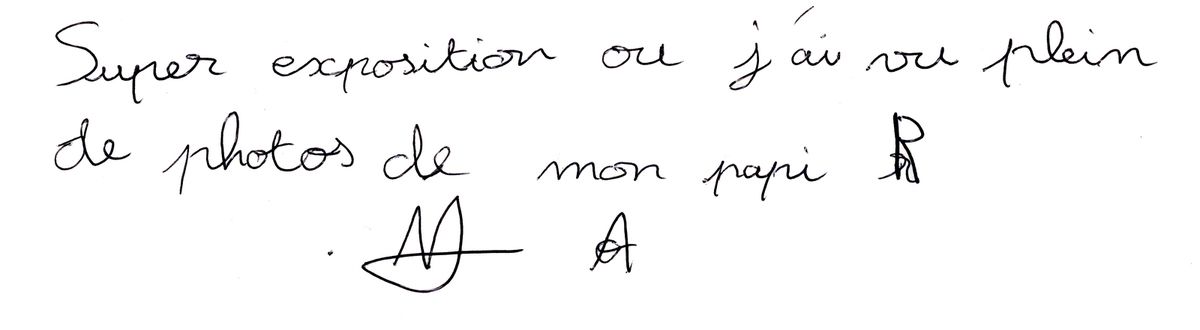 Super exposition ou j'ai vu plein
de photos de mon papi R
A